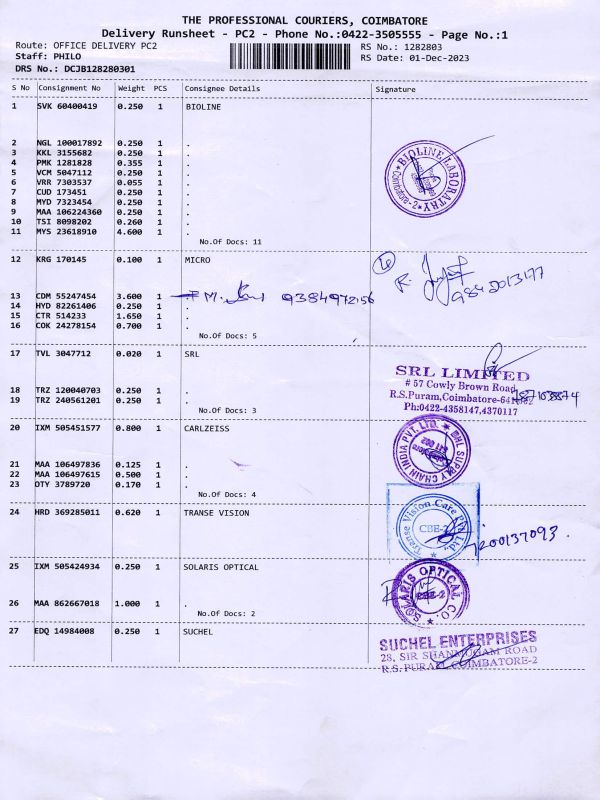 THE PROFESSIONAL COURIERS, COIMBATORE
Delivery Runsheet - PC2 - Phone No.:0422-3505555 - Page No.:1
Route: OFFICE DELIVERY PC2
Staff: PHILO
DRS No.: DCJB128280301
RS No.: 1282803
RS Date: 01-Dec-2023
S No Consignment No Weight PCS Consignee Details Signature
1 SVK 60400419 0.250 1 BIOLINE
2 NGL 100017892 0.250 1 .
3 KKL 3155682 0.250 1 .
4 PMK 1281828 0.355 1 .
5 VCM 5047112 0.250 1 .
6 VRR 7303537 0.055 1 .
7 CUD 173451 0.250 1 .
8 MYD 7323454 0.250 1 .
9 MAA 106224360 0.250 1 .
10 TSI 8098202 0.260 1 .
11 MYS 23618910 4.600 1 .
No.Of Docs: 11
BIOLINE LABORATHY
12 KRG 170145 0.100 1 MICRO
13 CDM 55247454 3.600 1 .
9384972156
14 HYD 82261406 0.250 1 .
15 CTR 514233 1.650 1 .
16 COK 24278154 0.700 1 .
No.Of Docs: 5
17 TVL 3047712 0.020 1 SRL
18 TRZ 120040703 0.250 1 .
19 TRZ 240561201 0.250 1 .
No.Of Docs: 3
SRL LIMITED
# 57 Cowly Brown Road
R.S.Puram,Coimbatore-
Ph:0422-4358147,4370117
20 IXM 505451577 0.800 1 CARLZEISS
21 MAA 106497836 0.125 1 .
22 MAA 106497615 0.500 1 .
23 OTY 3789720 0.170 1 .
No.Of Docs: 4
SUPPLY CHAIN INDIA PVT. LTD.
24 HRD 369285011 0.620 1 TRANSE VISION
Transe Vision Care Pvt Ltd.,
CBE-2
7200137093.
25 IXM 505424934 0.250 1 SOLARIS OPTICAL
26 MAA 862667018 1.000 1 .
No.Of Docs: 2
SOLARIS OPTICAL CO.
CBE-2
27 EDQ 14984008 0.250 1 SUCHEL
SUCHEL ENTERPRISES
28, SIR SHANMUGAM ROAD
R.S. PURAM, COIMBATORE-2